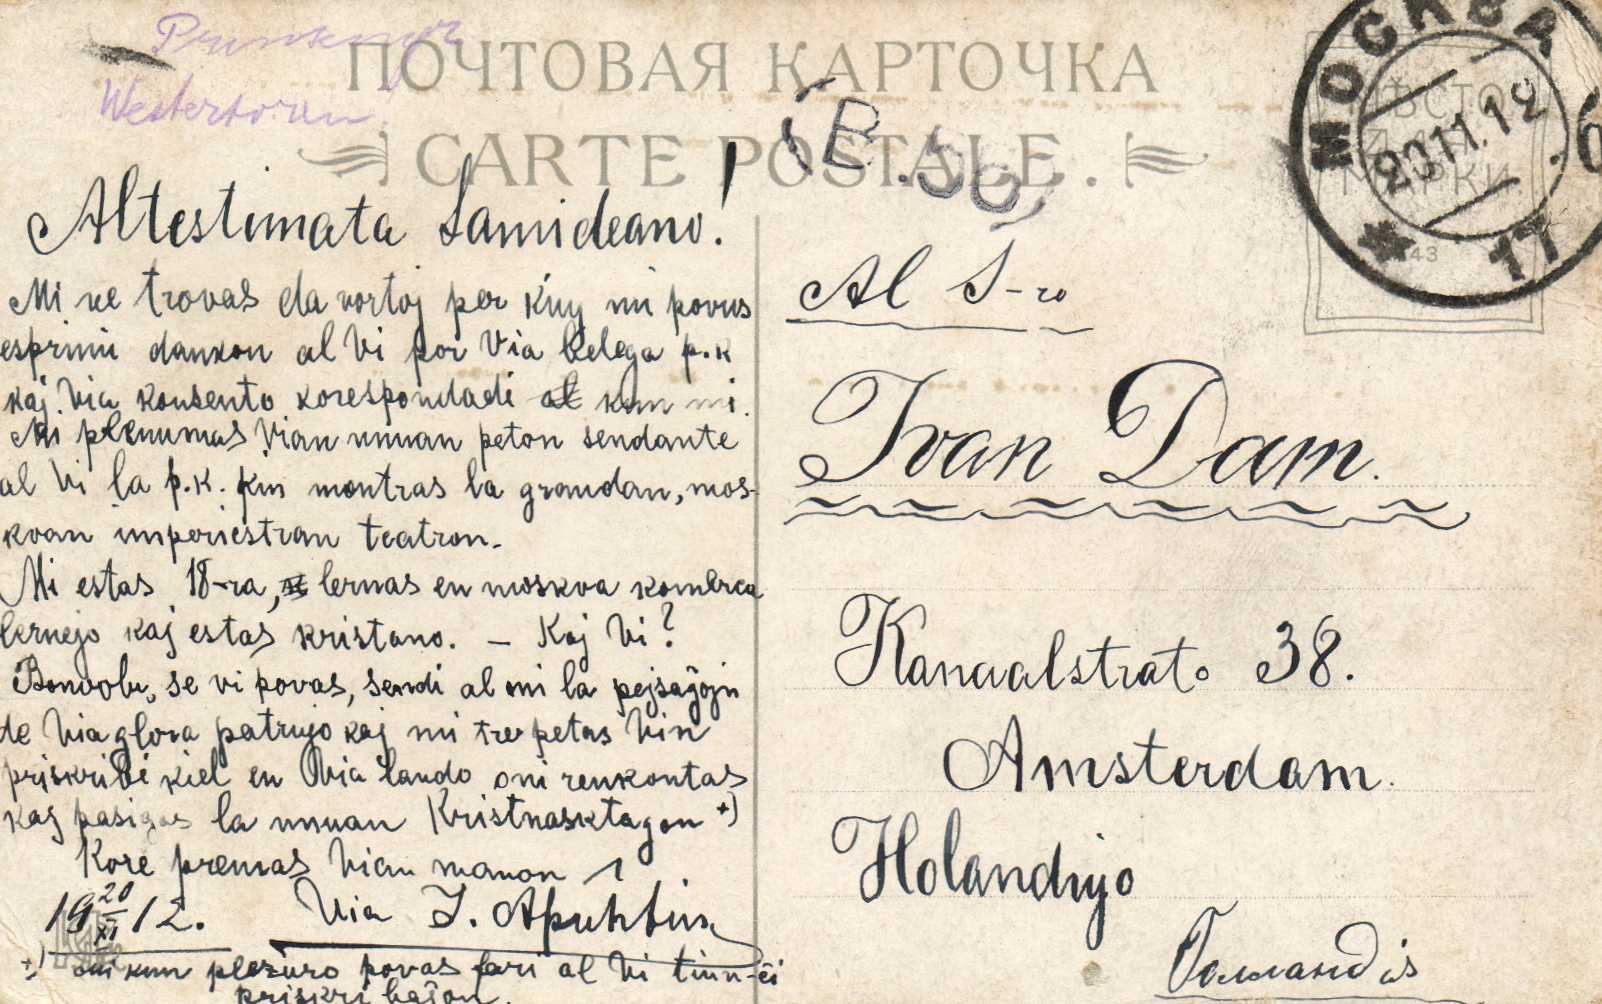 Westertoren!
ПОЧТОВАЯ КАРТОЧКА
CARTE POSTALE.
МОСКВА
20 11.12
17
МѢСТО
ДЛЯ
МАРКИ
43
B.
Altestimata Samideano!
Mi ne trovas da vortoj per kiuj mi povus
esprimi dankon al Vi por Via belega p.k
kaj Via konsento korespondadi al kun mi.
Mi plenumas Vian unuan peton sendante
al Vi la p.k. kiu montras la grandan, mos-
kvan imperiestran teatron.
Mi estas 18-ra, lernas en moskva komerca
lernejo kaj estas kristano. — Kaj Vi?
Bonvolu, se vi povas, sendi al mi la pejsaĝojn
de Via glora patrujo kaj mi tre petas Vin
priskribi kiel en Via lando oni renkontas
kaj pasigas la unuan Kristnasktagon +)
Kore premas Vian manon
19 20/XI 12. Via I. Apuhtin
+) mi kun plezuro povas fari al Vi tiun-ĉi
priskribaĵon.
Al S-ro
Ivan Dam.
Kanaalstrato 38.
Amsterdam.
Holandujo
Голландія